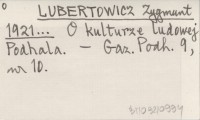 LUBERTOWICZ Zygmunt
1921... O kulturze ludowej
Podhala. – Gaz. Podh. 9,
nr 10.